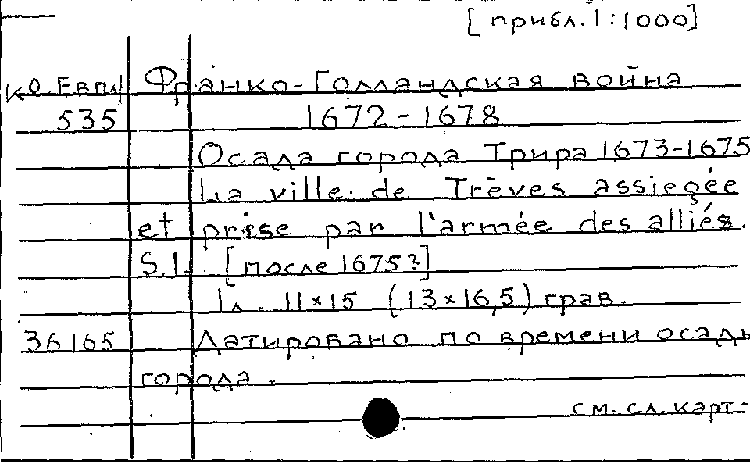 [прибл. 1:1000]
КО. Евп/ Франко-Голландская война
535 1672-1678
Осада города Трира 1673-1675
La ville de Trèves assiegée
et prise par l'armée des alliés.
S.l. [после 1675?]
1л. 11×15 (13×16,5) грав.
36165 Датировано по времени осады
города.
см. сл. карт-